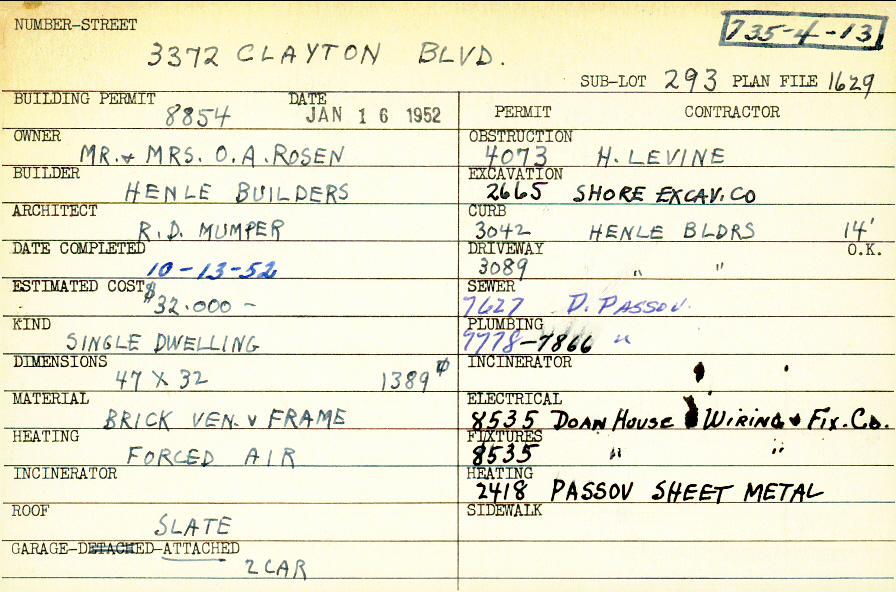 NUMBER-STREET
735-4-13
3372 CLAYTON BLVD.
SUB-LOT 293 PLAN FILE 1629
BUILDING PERMIT 8854 DATE JAN 16 1952
OWNER MR. & MRS. O.A. ROSEN
BUILDER HENLE BUILDERS
ARCHITECT R.D. MUMPER
DATE COMPLETED 10-13-52
ESTIMATED COST $32.000 -
KIND SINGLE DWELLING
DIMENSIONS 47 X 32 1389
MATERIAL BRICK VEN. & FRAME
HEATING FORCED AIR
INCINERATOR
ROOF SLATE
GARAGE-DETACHED-ATTACHED
2 CAR
PERMIT CONTRACTOR
OBSTRUCTION 4073 H. LEVINE
EXCAVATION 2665 SHORE EXCAV. CO
CURB 3042 HENLE BLDRS 14'
O.K.
DRIVEWAY 3089 " "
SEWER 7627 D. PASSOV.
PLUMBING 7778-7866 "
INCINERATOR
ELECTRICAL 8535 DOAN HOUSE WIRING & FIX. CO.
FIXTURES 8535 " "
HEATING 2418 PASSOV SHEET METAL
SIDEWALK